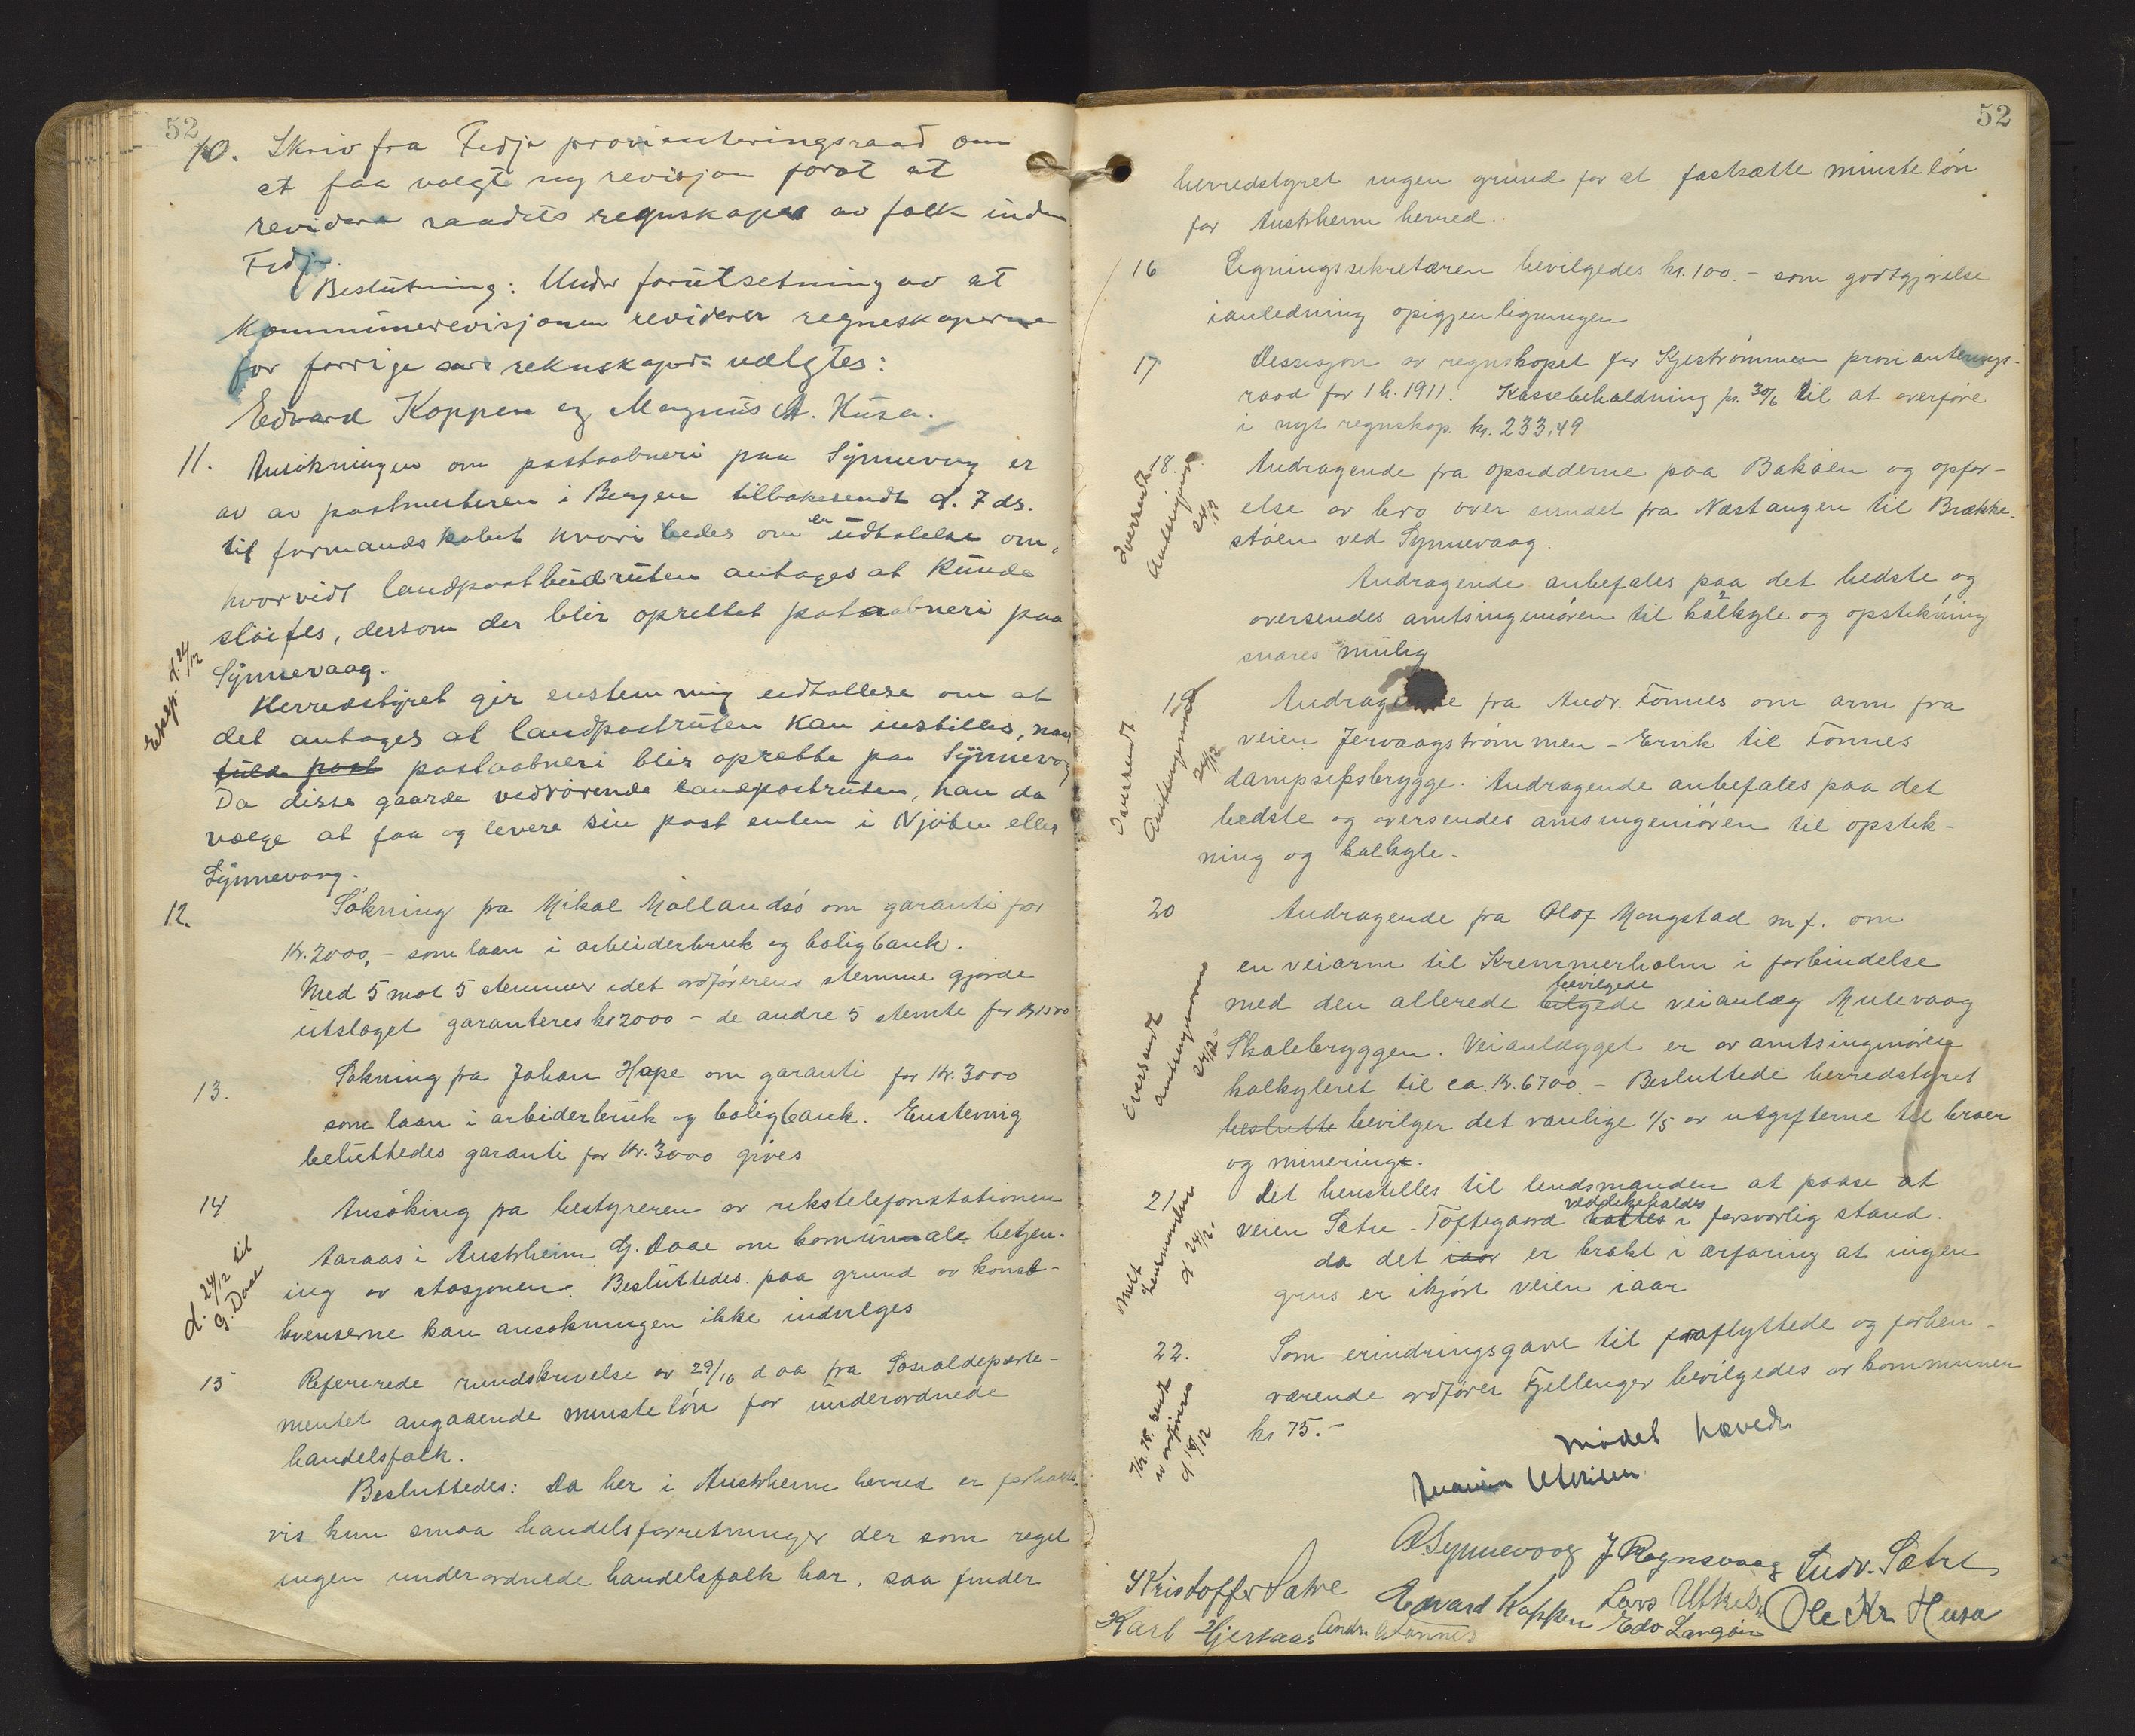 52
10. Skriv fra Fedje provianteringsraad om
at faa valgt ny revisjon forat at
revidere raadets regnskaper av folk inden
Fedje.
Beslutning: Under forutsetning av at
kommunerevisjonen reviderer regneskaperne
for forrige aars rekneskapsaar vælgtes:
Edvard Koppen og Magnus A. Husa.
11. Ansökningen om postaabneri paa Synnevaag er
av av postmesteren i Bergen tilbakesendt d. 7 ds.
til formandskabet hvori bedes om en udtalelse om,
hvorvidt landpostbudruten antages at kunde
slöifes, dersom der blir oprettet postaabneri paa
Synnevaag.
Eksp. d. 24/12
Herredstyret gir enstemmig udtallese om at
det antages at landpostruten kan instilles, naar
fuld post postaabneri blir oprettet paa Synnevaag
Da disse gaarde vedrörende landpostruten, kan da
vælge at faa og levere sin post enten i Njöten eller
Synnevaag.
12. Sökning fra Mikal Mollandsö om garanti for
Kr. 2000,- som laan i arbeiderbruk og boligbank.
Med 5 mot 5 stemmer idet ordförerens stemme gjorde
utslaget garanteres kr 2000 - de andre 5 stemte for kr 1500
13. Sökning fra Johan Hope om garanti for Kr. 3000
som laan i arbiderbruk og boligbank. Enstemig
beluttedes garanti for Kr. 3000 gives
14 Ansöking fra bestyreren av rikstelefonstationen
Aaraas i Austrheim G. Daae om komunale betjen-
ing av stasjonen. Besluttedes paa grund av konse-
kvenserne kan ansokningen ikke indvilges
d. 24/12 til
G. Daae
15 Refererede rundskrivelse av 29/10 d aa fra Sosialdeparte-
mentet angaaende minsteløn for underordnede
handelsfolk.
Besluttedes: Da her i Austrheim herred er forholds-
vis kun smaa handelsforretninger der som regel
ingen underordnede handelsfolk har, saa finder
52
herredstyret ingen grund for at fastsætte minsteløn
for Austrheim herred..
16 Ligningssekretæren bevilgedes kr. 100.- som godtgjørelse
ianledning opigjenligningen
17 Dessisjon av regnskapet for Kjeströmmen provianterings-
raad for 1 h. 1911. Kassebeholdning pr. 30/6 til at overföre
i nyt regnskap. kr. 233,49
18. Andragende fra opsidderne paa Bakøen og opför-
else av bro over sundet fra Næstangen til Brække-
støen ved Synnevaag.
Oversendt
Amtsingeniør
24/12
Andragende anbefales paa det bedste og
oversendes amtsingeniøren til kalkyle og opstikning
snares mulig
19 Andragende fra Andr. Fonnes om arm fra
veien Jervaagströmmen - Ervik til Fonnes
dampsipsbrygge. Andragende anbefales paa det
bedste og oversendes amsingeniøren til opstik-
ning og kalkyle.
Oversendt
Amtsingeniør
24/12
20 Andragende fra Olof Mongstad m fl. om
en veiarm til Kremmerholm i forbindelse
bevilgede
med den allerede bilgede veianlæg Mulevaag
Skalebryggen. Veianlægget er av amtsingeniøren
kalkyleret til ca. Kr. 6700.- Besluttede herredstyret
beslutte bevilger det vanlige 1/5 av utgifterne til broer
og minering.
Oversendt
amtsingeniøren
24/12
21 Det henstilles til lendsmanden at paase at
vedlikeholdes
veien Sætre - Toftegaard holdes i forsvarlig stand.
da det iaar er brakt i ærfaring at ingen
grus er ikjørt veien iaar
Melt
Lensmanden
d 24/12
22. Som erindringsgave til fraflyttede og forhen-
værende ordfører Fjellenger bevilgedes av kommunen
kr 75.-
Kr. 75. sendt
d 18/12
Mødet hævede
A. Synnevaag J Rognsvaag Andr. Sætre
Kristoffer Sætre Edvard Koppen Lars Utkilen Ole Kr. Husa
Karl Hjertaas Andr. Fonnes Edv Langøen